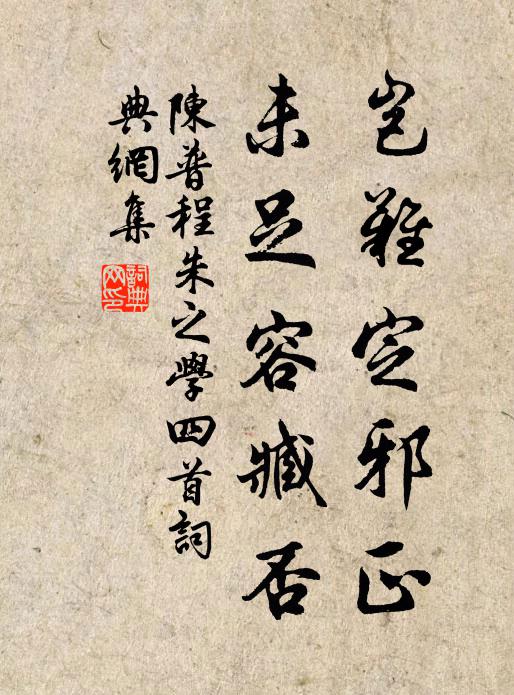 豈難定邪正
未足容臧否
陳普程朱之學四首詞
典網集
詞典網印